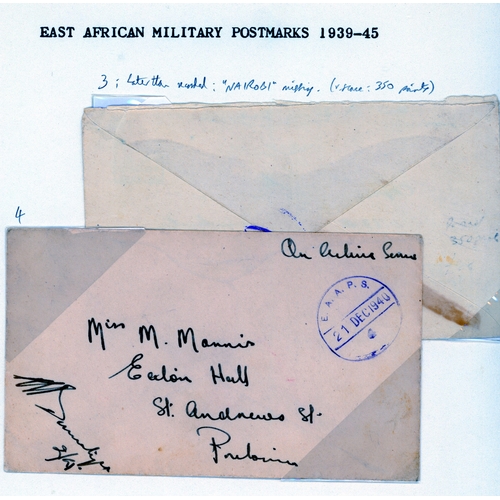 EAST AFRICAN MILITARY POSTMARKS 1939-45
3; Later than recorded: "NAIROBI" missing. (v.scarce: 350 points)
4
On Active Service
E. A. A. P. S.
21 DEC 1940
Miss M. Mannis
Eaton Hall
St. Andrews St.
Pretoria